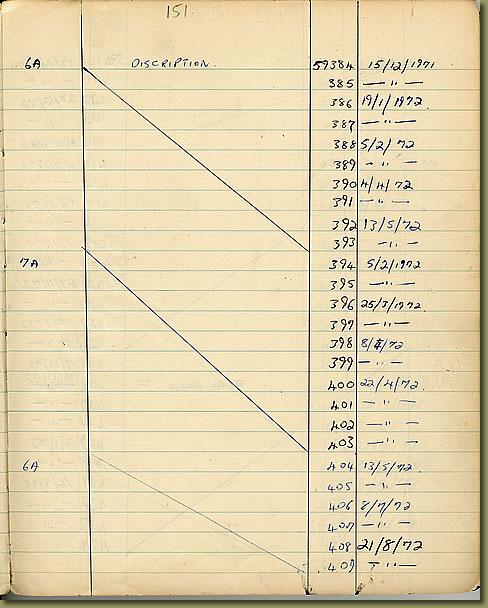 151.
6A DISCRIPTION. 59384 15/12/1971
385 — " —
386 19/1/1972.
387 — " —
388 5/2/72
389 — " —
390 4/4/72
391 — " —
392 13/5/72
393 — " —
7A 394 5/2/1972
395 — " —
396 25/3/1972.
397 — " —
398 8/4/72
399 — " —
400 22/4/72.
401 — " —
402 — " —
403 — " —
6A 404 13/5/72.
405 — " —
406 8/7/72
407 — " —
408 21/8/72
409 — " —